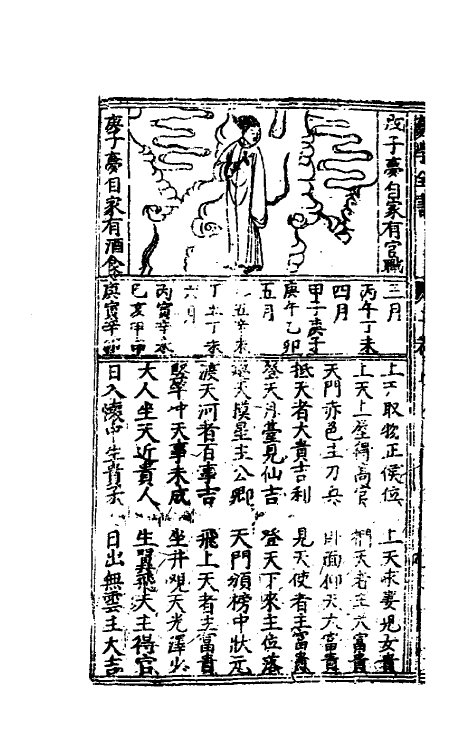 改子夢自家有官職
庚子夢自家有酒食
三月
丙午丁未
四月
甲子庚子
庚午乙卯
五月
辛丑辛未
丁丑丁未
六月
丙寅辛未
己亥甲申
庚寅辛卯
上天取物正侯位
上天求妻兒女貴
上天上壁得高官
天者主大富貴
天門赤色主刀兵
卧面仰天大富貴
抵天者大貴吉利
見天使者主富貴
登天月臺見仙吉
登天下來主位落
天摸星主公卿
天門頒榜中狀元
渡天河者百事吉
飛上天者主富貴
冲天事未成
坐井觀天光澤少
大人坐天近貴人
生翼飛天主得官
日入懷中生貴子
日出無雲主大吉